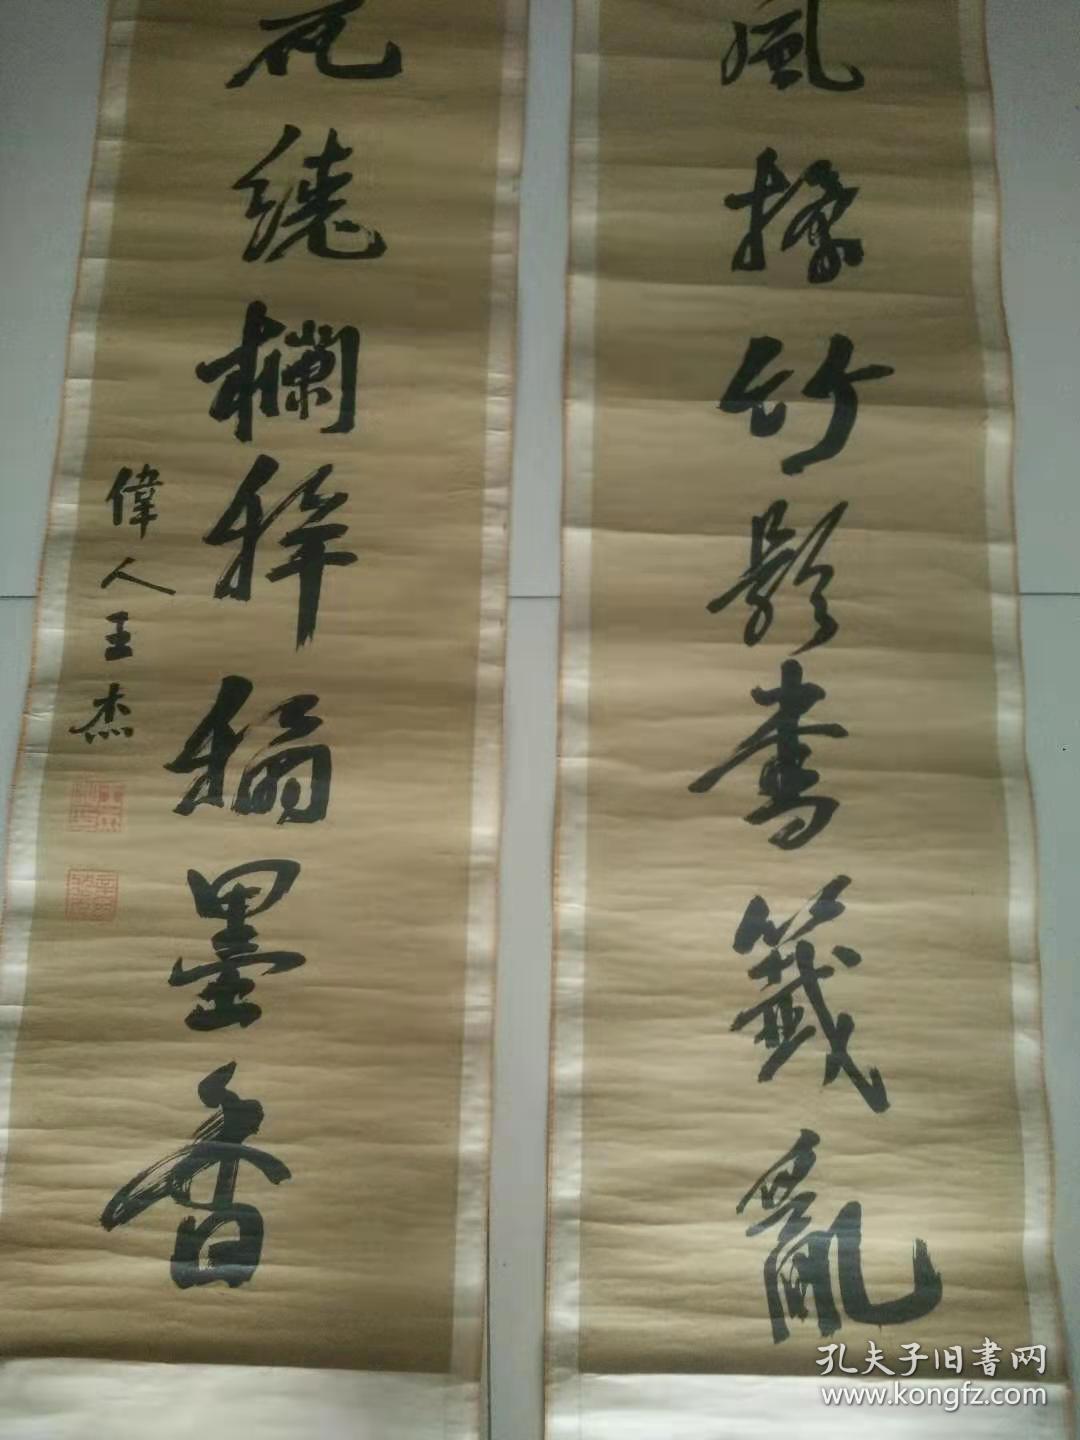 風揉竹影書籤亂
花繞欄稿墨香
偉人王杰
孔夫子旧書网
www.kongfz.com